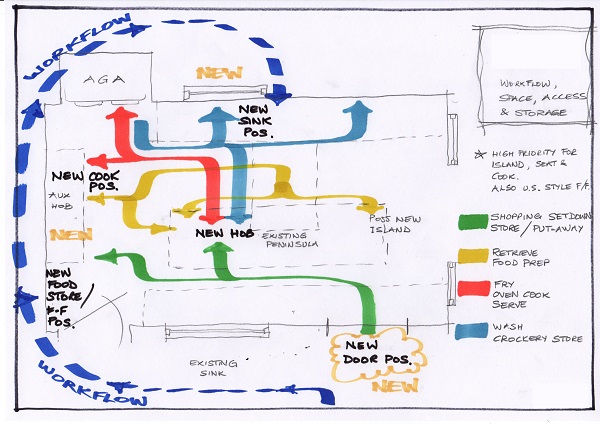 WORKFLOW
AGA
NEW
NEW
SINK
POS.
WORKFLOW,
SPACE, ACCESS
& STORAGE
HIGH PRIORITY FOR
ISLAND, SEAT &
COOK.
ALSO U.S. STYLE F/F.
NEW COOK
POS.
AUX
HOB
NEW
NEW HOB
EXISTING
PENINSULA
POSS NEW
ISLAND
SHOPPING SETDOWN
STORE / PUT-AWAY
RETRIEVE
FOOD PREP
FRY
OVEN COOK
SERVE
WASH
CROCKERY STORE
NEW
FOOD
STORE/
F.F
POS.
EXISTING
SINK
NEW
DOOR POS.
NEW
WORKFLOW